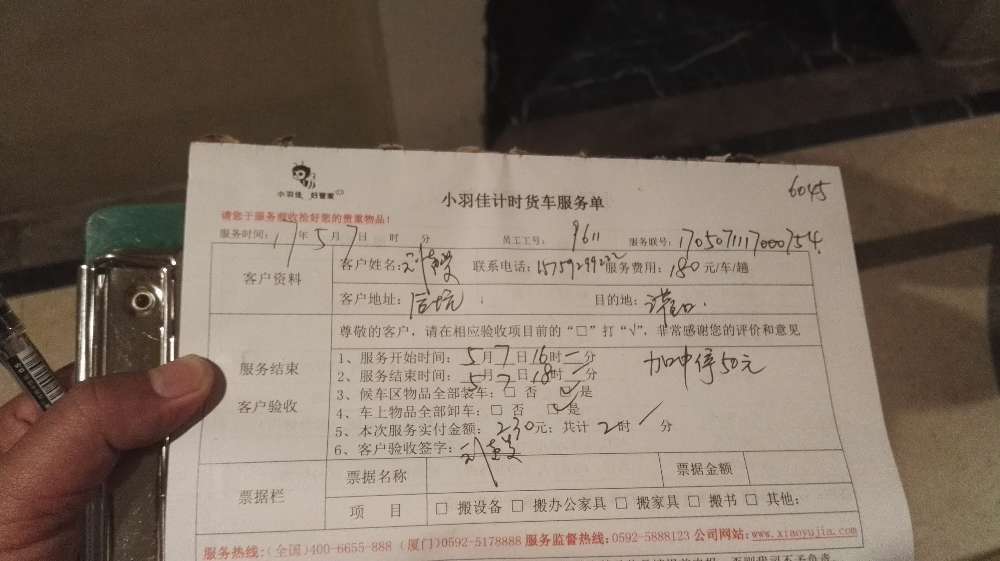 小羽佳 好管家
小羽佳计时货车服务单
6045
请您于服务前收拾好您的贵重物品！
服务时间：17年5月7日 时 分 员工工号：9611 服务联号：1705071117000754
客户资料
客户姓名：刘 联系电话：15759299222 服务费用：180元/车/趟
客户地址： 目的地：
服务结束
客户验收
尊敬的客户，请在相应验收项目前的“□”打“√”，非常感谢您的评价和意见
1、服务开始时间：5月7日16时一分
加中停50元
2、服务结束时间：5月7日18时一分
3、候车区物品全部装车：□ 否 ☑是
4、车上物品全部卸车：□ 否 ☑是
5、本次服务实付金额：230元；共计2时/分
6、客户验收签字：刘
票据栏
票据名称 票据金额
项 目 □ 搬设备 □ 搬办公家具 □ 搬家具 □ 搬书 □ 其他：
服务热线：(全国)400-6655-888 (厦门)0592-5178888 服务监督热线：0592-5888123 公司网站：www.xiaoyujia.com